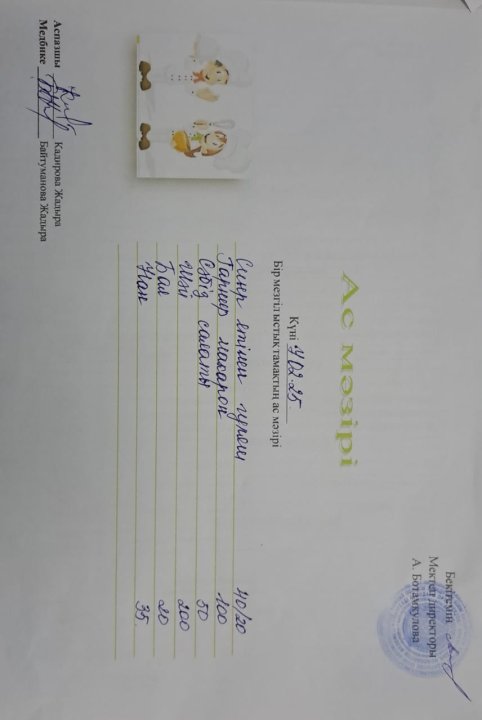 Бекітемін
Мектеп директоры
А. Ботамкулова
Ас мәзірі
Күні 4 02 25
Бір мезгіл ыстық тамақтың ас мәзірі
Сиыр етінен гуляш 40/20
Гарнир макарон 100
Сәбіз салаты 50
Шәй 200
Бал 20
Нан 35
Аспазшы Кадирова Жадыра
Медбике Байтуманова Жадыра